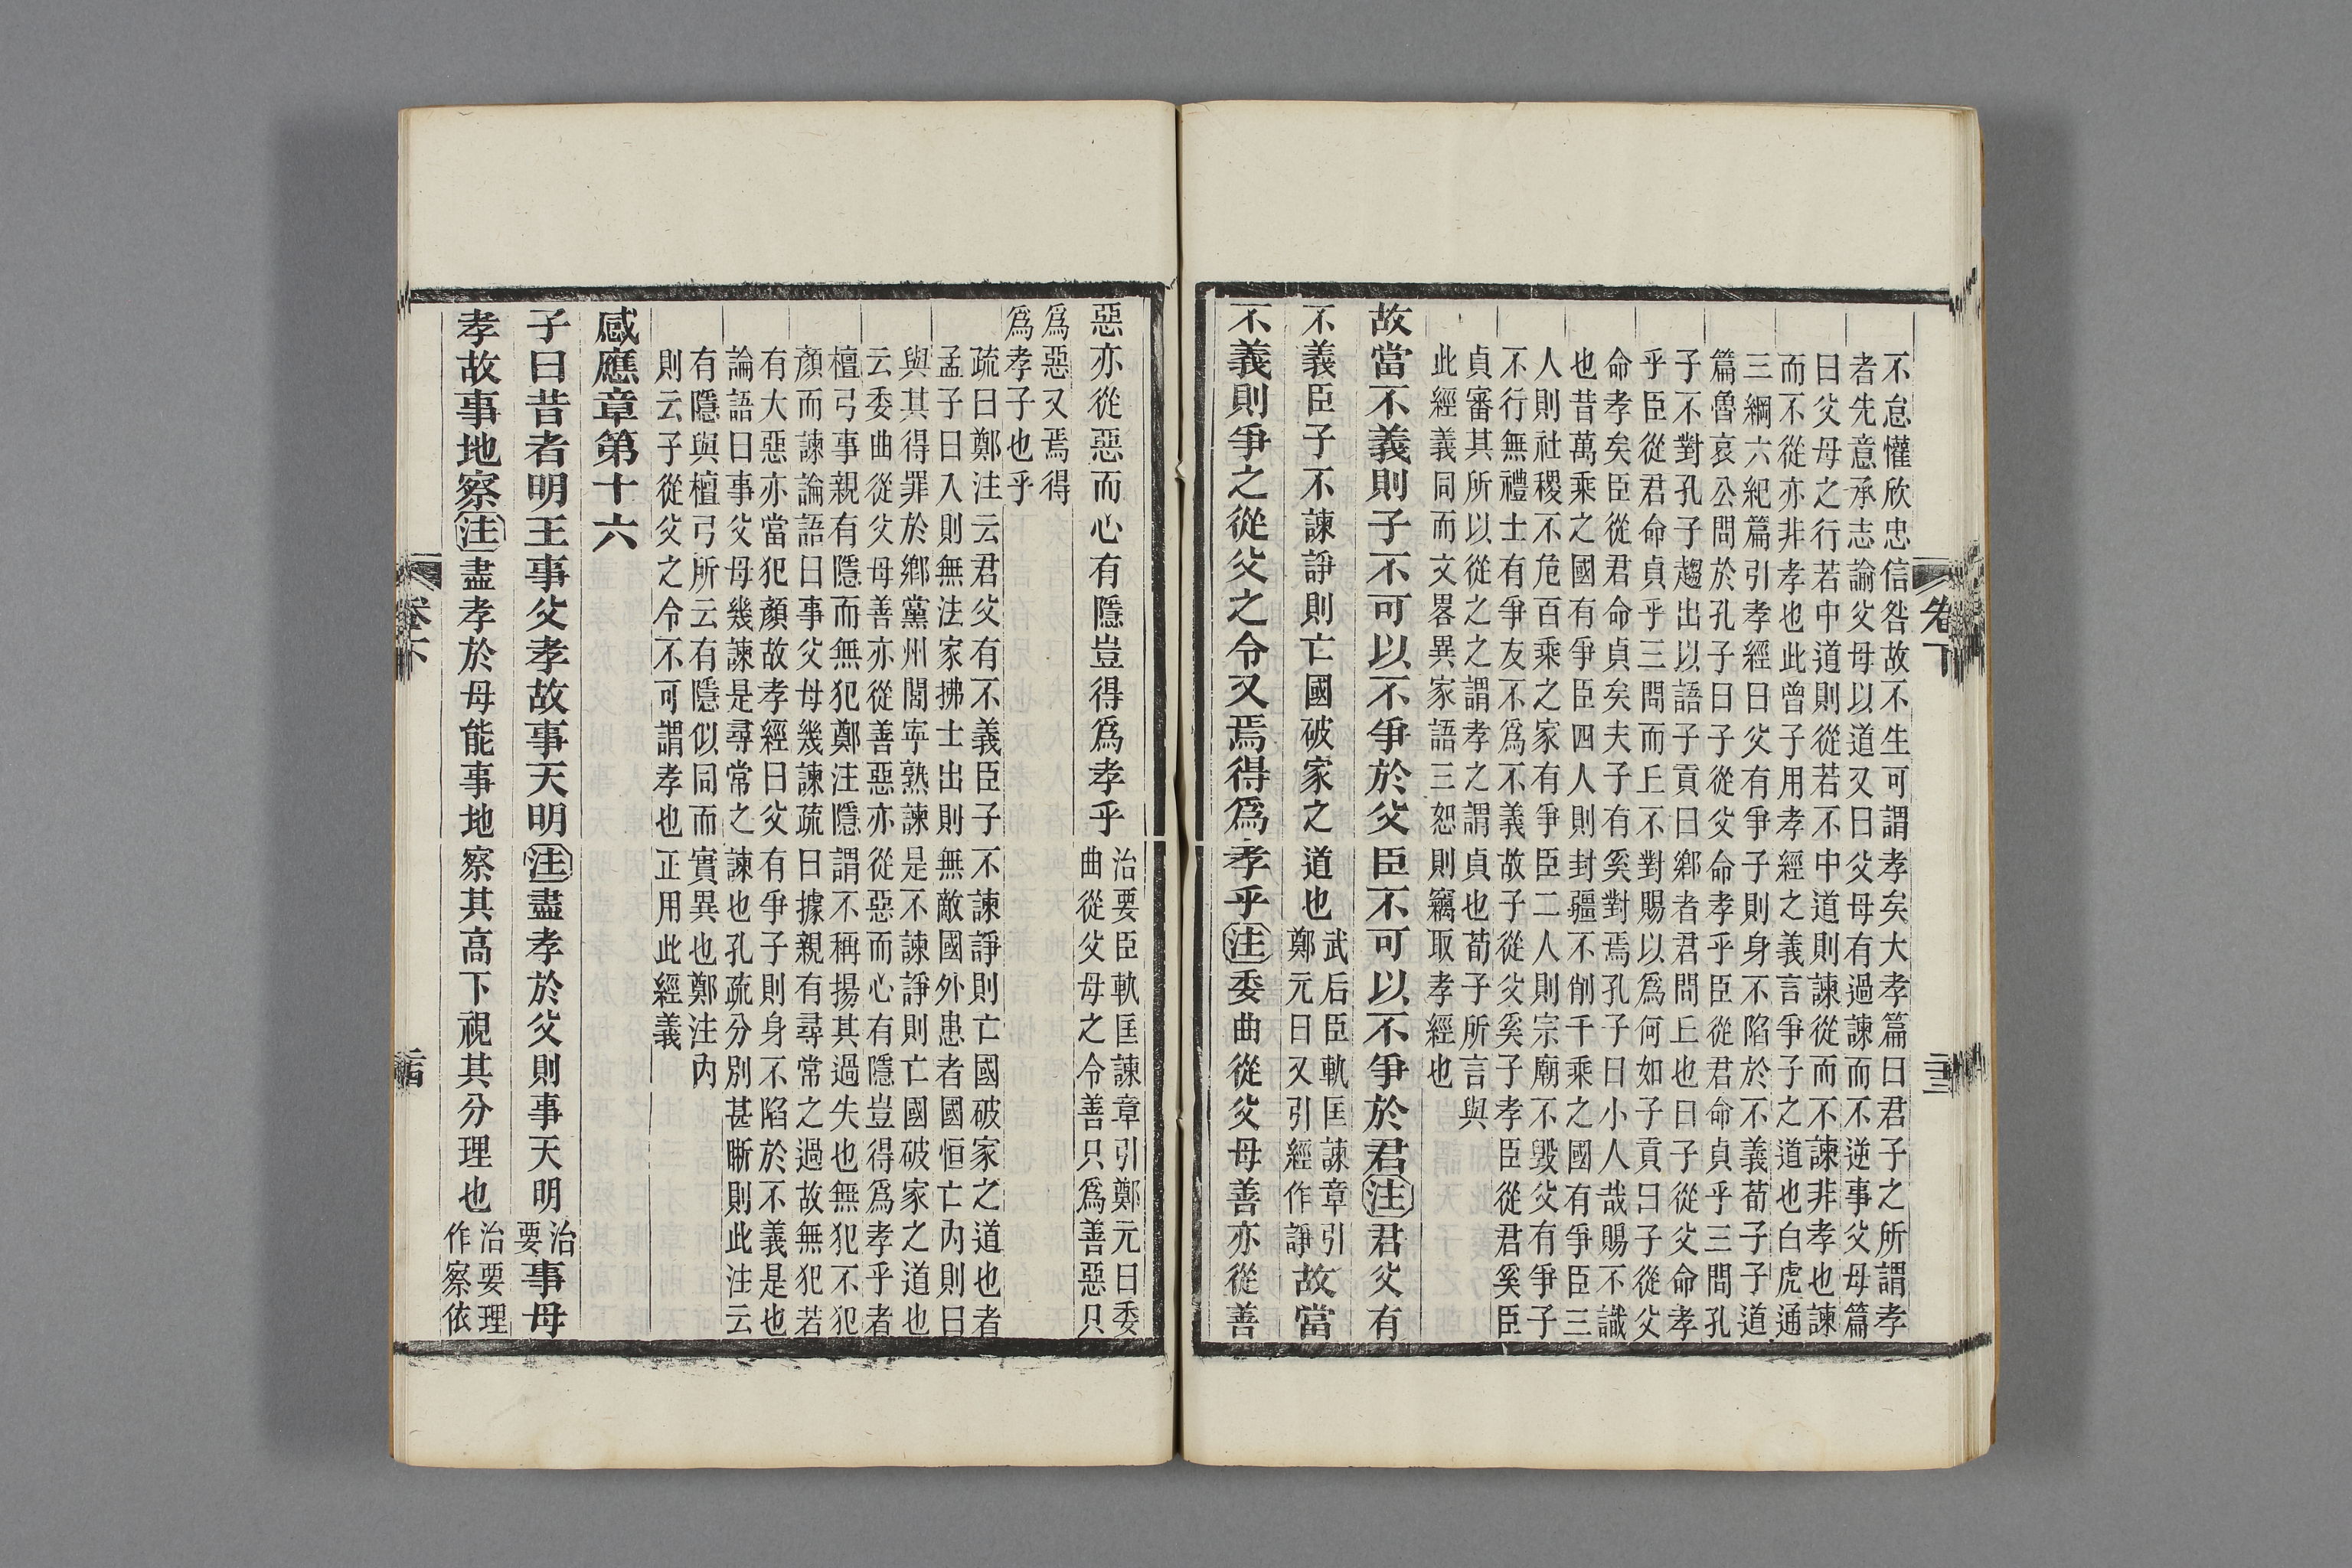 不怠懽欣忠信咎故不生可謂孝矣大孝篇曰君子之所謂孝
者先意承志諭父母以道又曰父母有過諫而不逆事父母篇
曰父母之行若中道則從若不中道則諫從而不諫非孝也諫
而不從亦非孝也此曾子用孝經之義言爭子之道也白虎通
三綱六紀篇引孝經曰父有爭子則身不陷於不義荀子子道
篇魯哀公問於孔子曰子從父命孝乎臣從君命貞乎三問孔
子不對孔子趨出以語子貢曰鄉者君問丘也曰子從父命孝
乎臣從君命貞乎三問而丘不對賜以爲何如子貢曰子從父
命孝矣臣從君命貞矣夫子有奚對焉孔子曰小人哉賜不識
也昔萬乘之國有爭臣四人則封疆不削千乘之國有爭臣三
人則社稷不危百乘之家有爭臣二人則宗廟不毀父有爭子
不行無禮士有爭友不爲不義故子從父奚子孝臣從君奚臣
貞審其所以從之之謂孝之謂貞也荀子所言與
此經義同而文畧異家語三恕則竊取孝經也
故當不義則子不可以不爭於父臣不可以不爭於君注君父有
不義臣子不諫諍則亡國破家之道也武后臣軌匡諫章引
鄭元曰又引經作諍故當
不義則爭之從父之令又焉得爲孝乎注委曲從父母善亦從善
惡亦從惡而心有隱豈得爲孝乎治要臣軌匡諫章引鄭元曰委
曲從父母之令善只爲善惡只
爲惡又焉得
爲孝子也乎
疏曰鄭注云君父有不義臣子不諫諍則亡國破家之道也者
孟子曰入則無法家拂士出則無敵國外患者國恒亡內則曰
與其得罪於鄉黨州閭寧熟諫是不諫諍則亡國破家之道也
云委曲從父母善亦從善惡亦從惡而心有隱豈得爲孝乎者
檀弓事親有隱而無犯鄭注隱謂不稱揚其過失也無犯不犯
顏而諫論語曰事父母幾諫疏曰據親有尋常之過故無犯若
有大惡亦當犯顏故孝經曰父有爭子則身不陷於不義是也
論語曰事父母幾諫是尋常之諫也孔疏分別甚晰則此注云
有隱與檀弓所云有隱似同而實異也鄭注內
則云子從父之令不可謂孝也正用此經義
感應章第十六
子曰昔者明王事父孝故事天明注盡孝於父則事天明治
要事母
孝故事地察注盡孝於母能事地察其高下視其分理也治要理
作察依
卷下
二十三
卷下